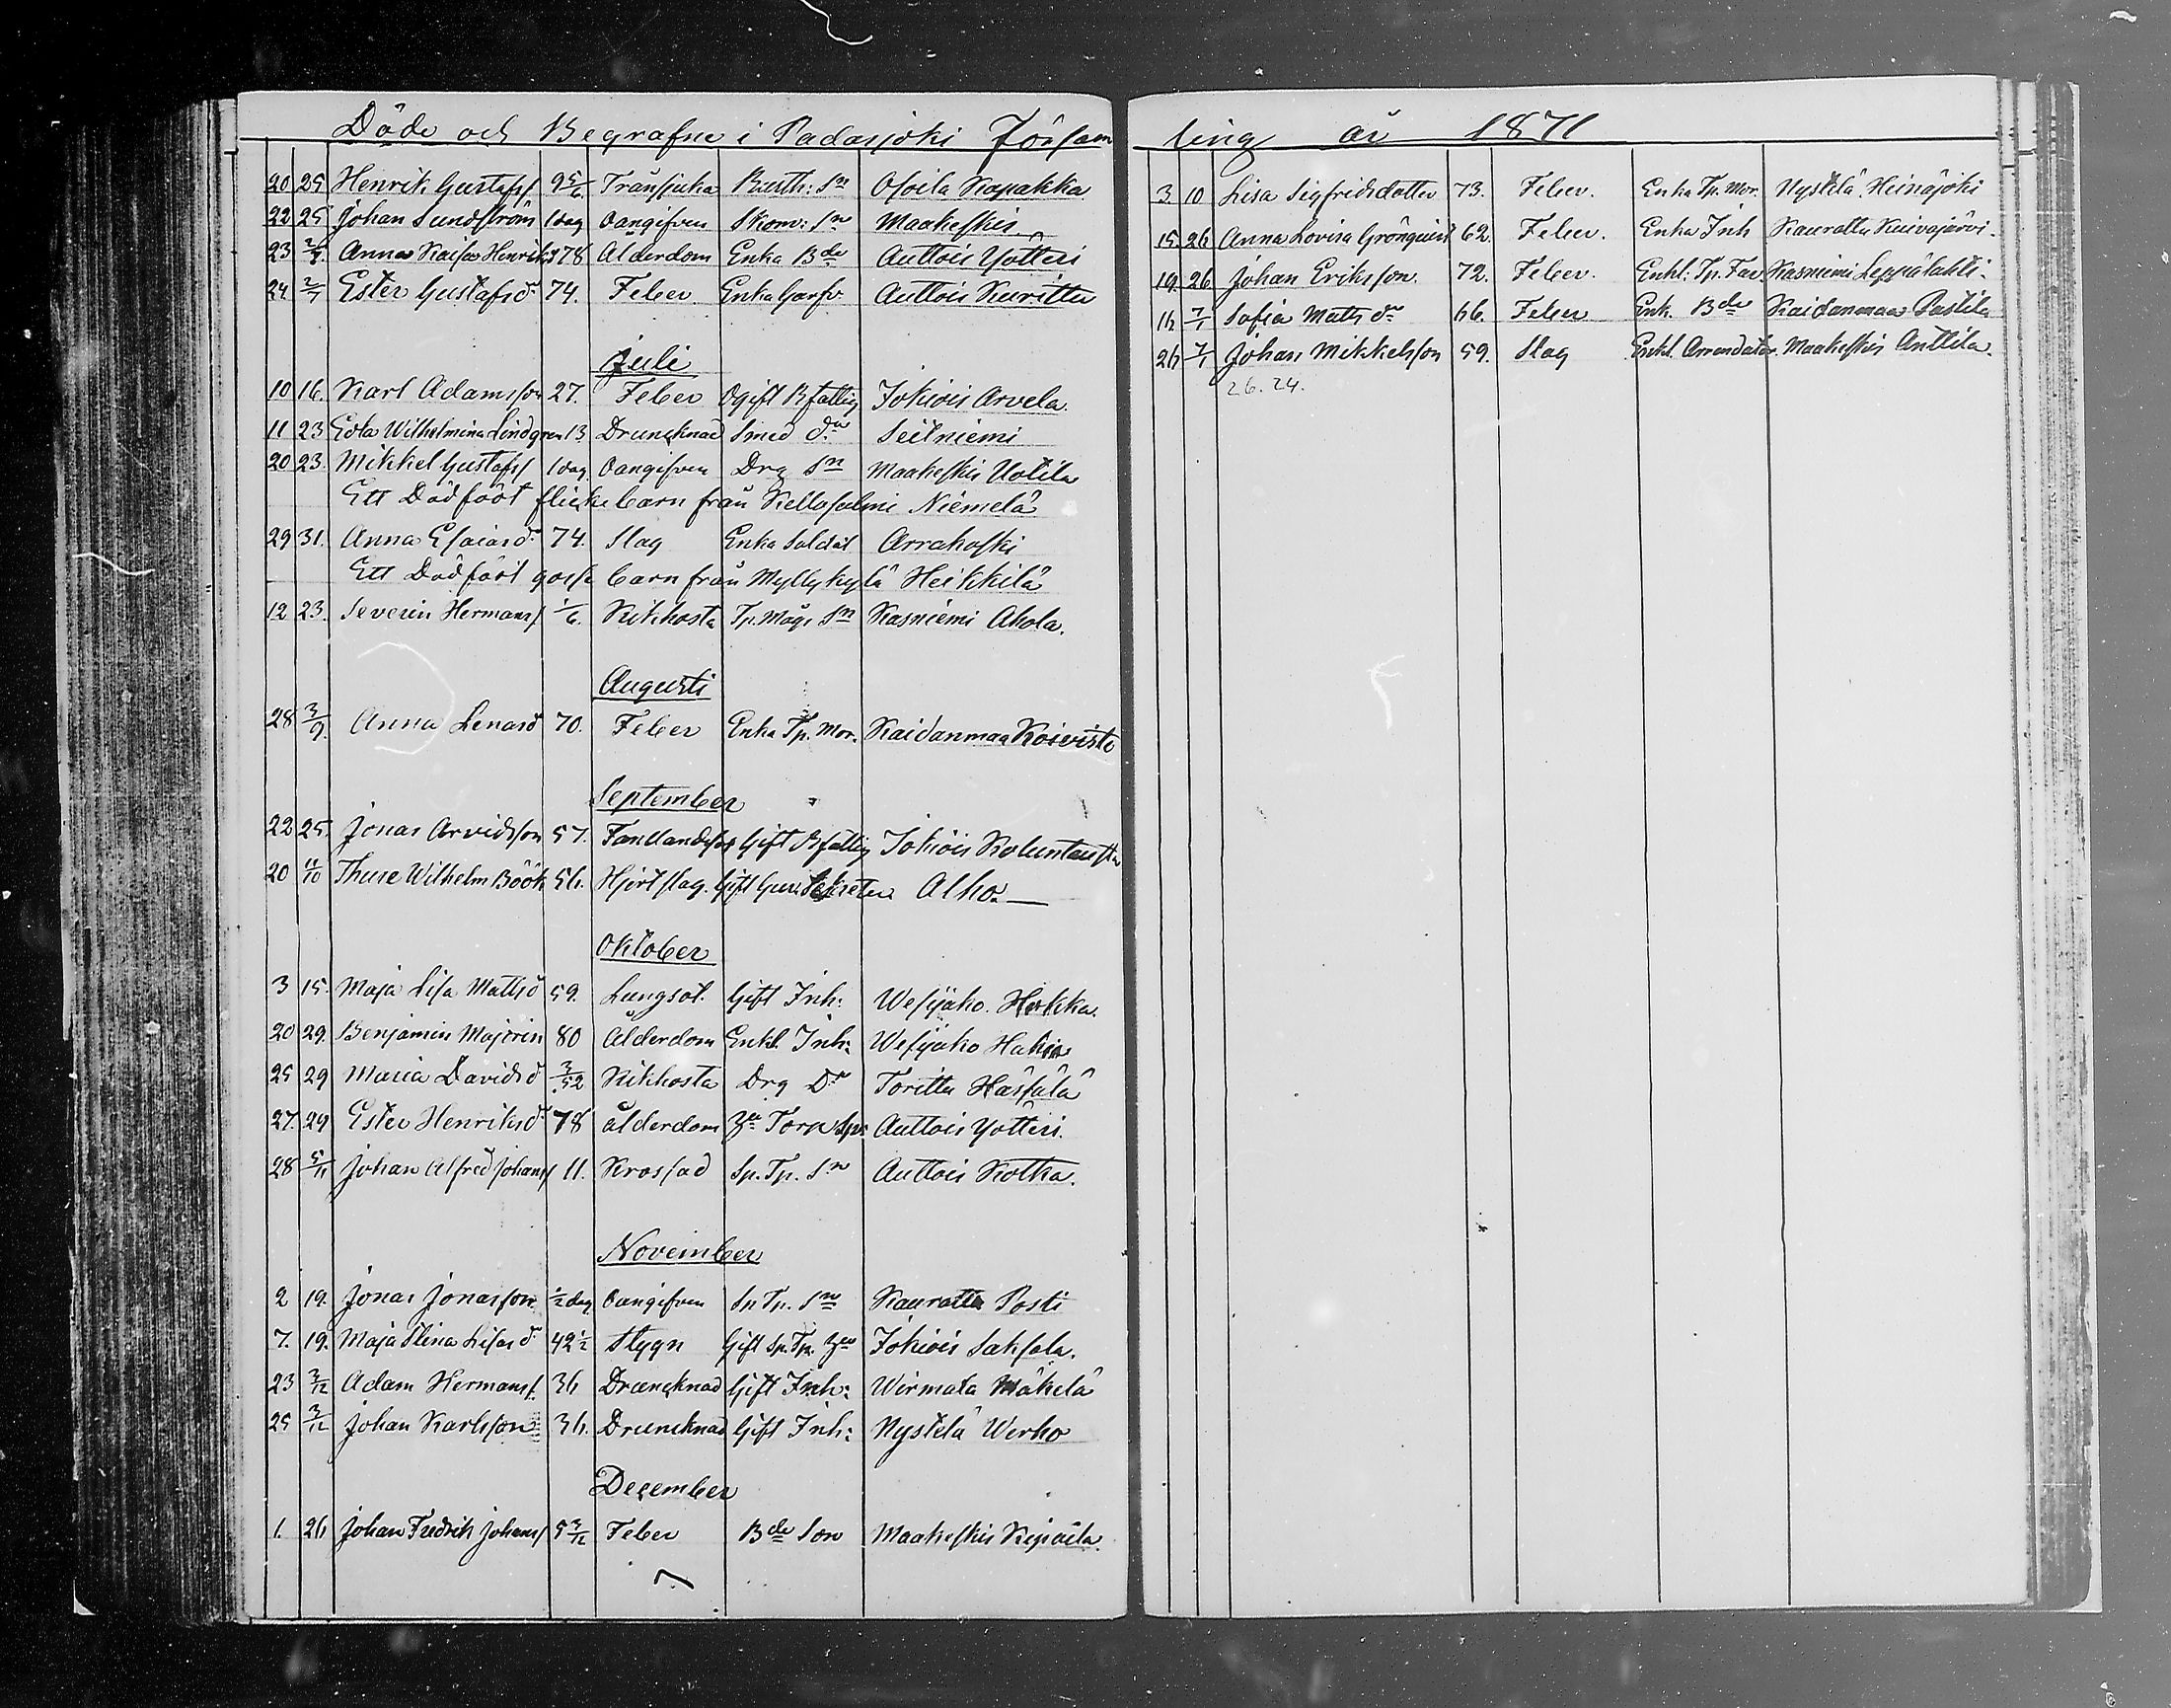 Döde och Begrafne i Padasjoki Försam
20 25 Henrik Gustafss 9 5/6 Trånsjuka Busth: Sn Osoila Kapakka
22 25 Johan Sundström 1 dag Oangifven Skom: Sn Maakeskis
23 2/7 Anna Kaisa Henriksd 78 Ålderdom Enka Bde Auttois Yötteri
24 2/7 Ester Gustafsd 74. Feber Enka Auttois Kuritta
Juli
10 16. Karl Adamsson 27. Feber Ogift Bfattig Jokiois Arvela.
11 23 Edla Wilhelmina Lindgren 13 Druncknad Smed dr Seitniemi
20 23. Mikkel Gustafss 1 dag Oangifven Drg Sn Maakeskis Uotila
Ett Dödfödt flickebarn från Kellosalmi Niemelä
29 31. Anna Esaiasd 74. Slag Enka Soldat Arrakoski
Ett Dödfödt gosse barn från Myllykylä Heikkilä
12 23. Severin Hermanss 1/6. Kikhosta Tp. Mågs Sn Kasniemi Ahola.
Augusti
28 3/9. Anna Lenasd 70. Feber Enka Tp. Mor. Kaidanmaa Koivisto
September
22 25. Jonas Arvidsson 57. Gift Bfattig Jokiois
20 11/10 Thure Wilhelm Böök 56. Hjertslag. Gift Alho.
Oktober
3 15. Maja Lisa Mattsd 59. Lungsot. Gift Inh: Wesijako. Hokka.
20 29. Benjamin Majorin 80 Ålderdom Enkl. Inh: Wesijako
25 29 Maria Davidsd 3/52 Kikhosta Drg Dr Toritta Hässälä
27. 29 Ester Henriksd 78 ålderdom Auttois Yötteri.
28 5/11 Johan Alfred Johanss 11. Krossad Sp. Tp. Sn Auttois Kotka.
November
2 19. Jonas Jonasson 1/2 dag Oangifven Sp Tp. Sn Kauratta Posti
7. 19. Maja Stina Lisasd 42 1/2 Stygn Gift Sp. Tp. Jokiois Saksala.
23 3/12 Adam Hermanss. 36 Druncknad Gift Inh: Wirmata Mäkelä
25 3/12 Johan Karlsson 36. Druncknad Gift Inh: Nystölä Werho
December
1. 26 Johan Fredrik Johanss 5 3/12 Feber Bde Son Maakeskis
ling år 1871
3 10 Lisa Sigfridsdotter 73. Feber. Enka Tp. Mor. Nystölä Heinäjoki
15 26 Anna Lovisa Grönquist 62. Feber. Enka Inh Kauratta Kuivajärvi.
19. 26 Johan Eriksson. 72. Feber. Enkl: Tp. Far. Kasniemi Leppälahti.
16 7/1 Sofia Mattsdr 66. Feber Enk. Bde Kaidanmaa Pastila
26 7/1 Johan Mikkelsson 59. Slag Enkl. Arrendator. Maakeskis Anttila.
26. 24.